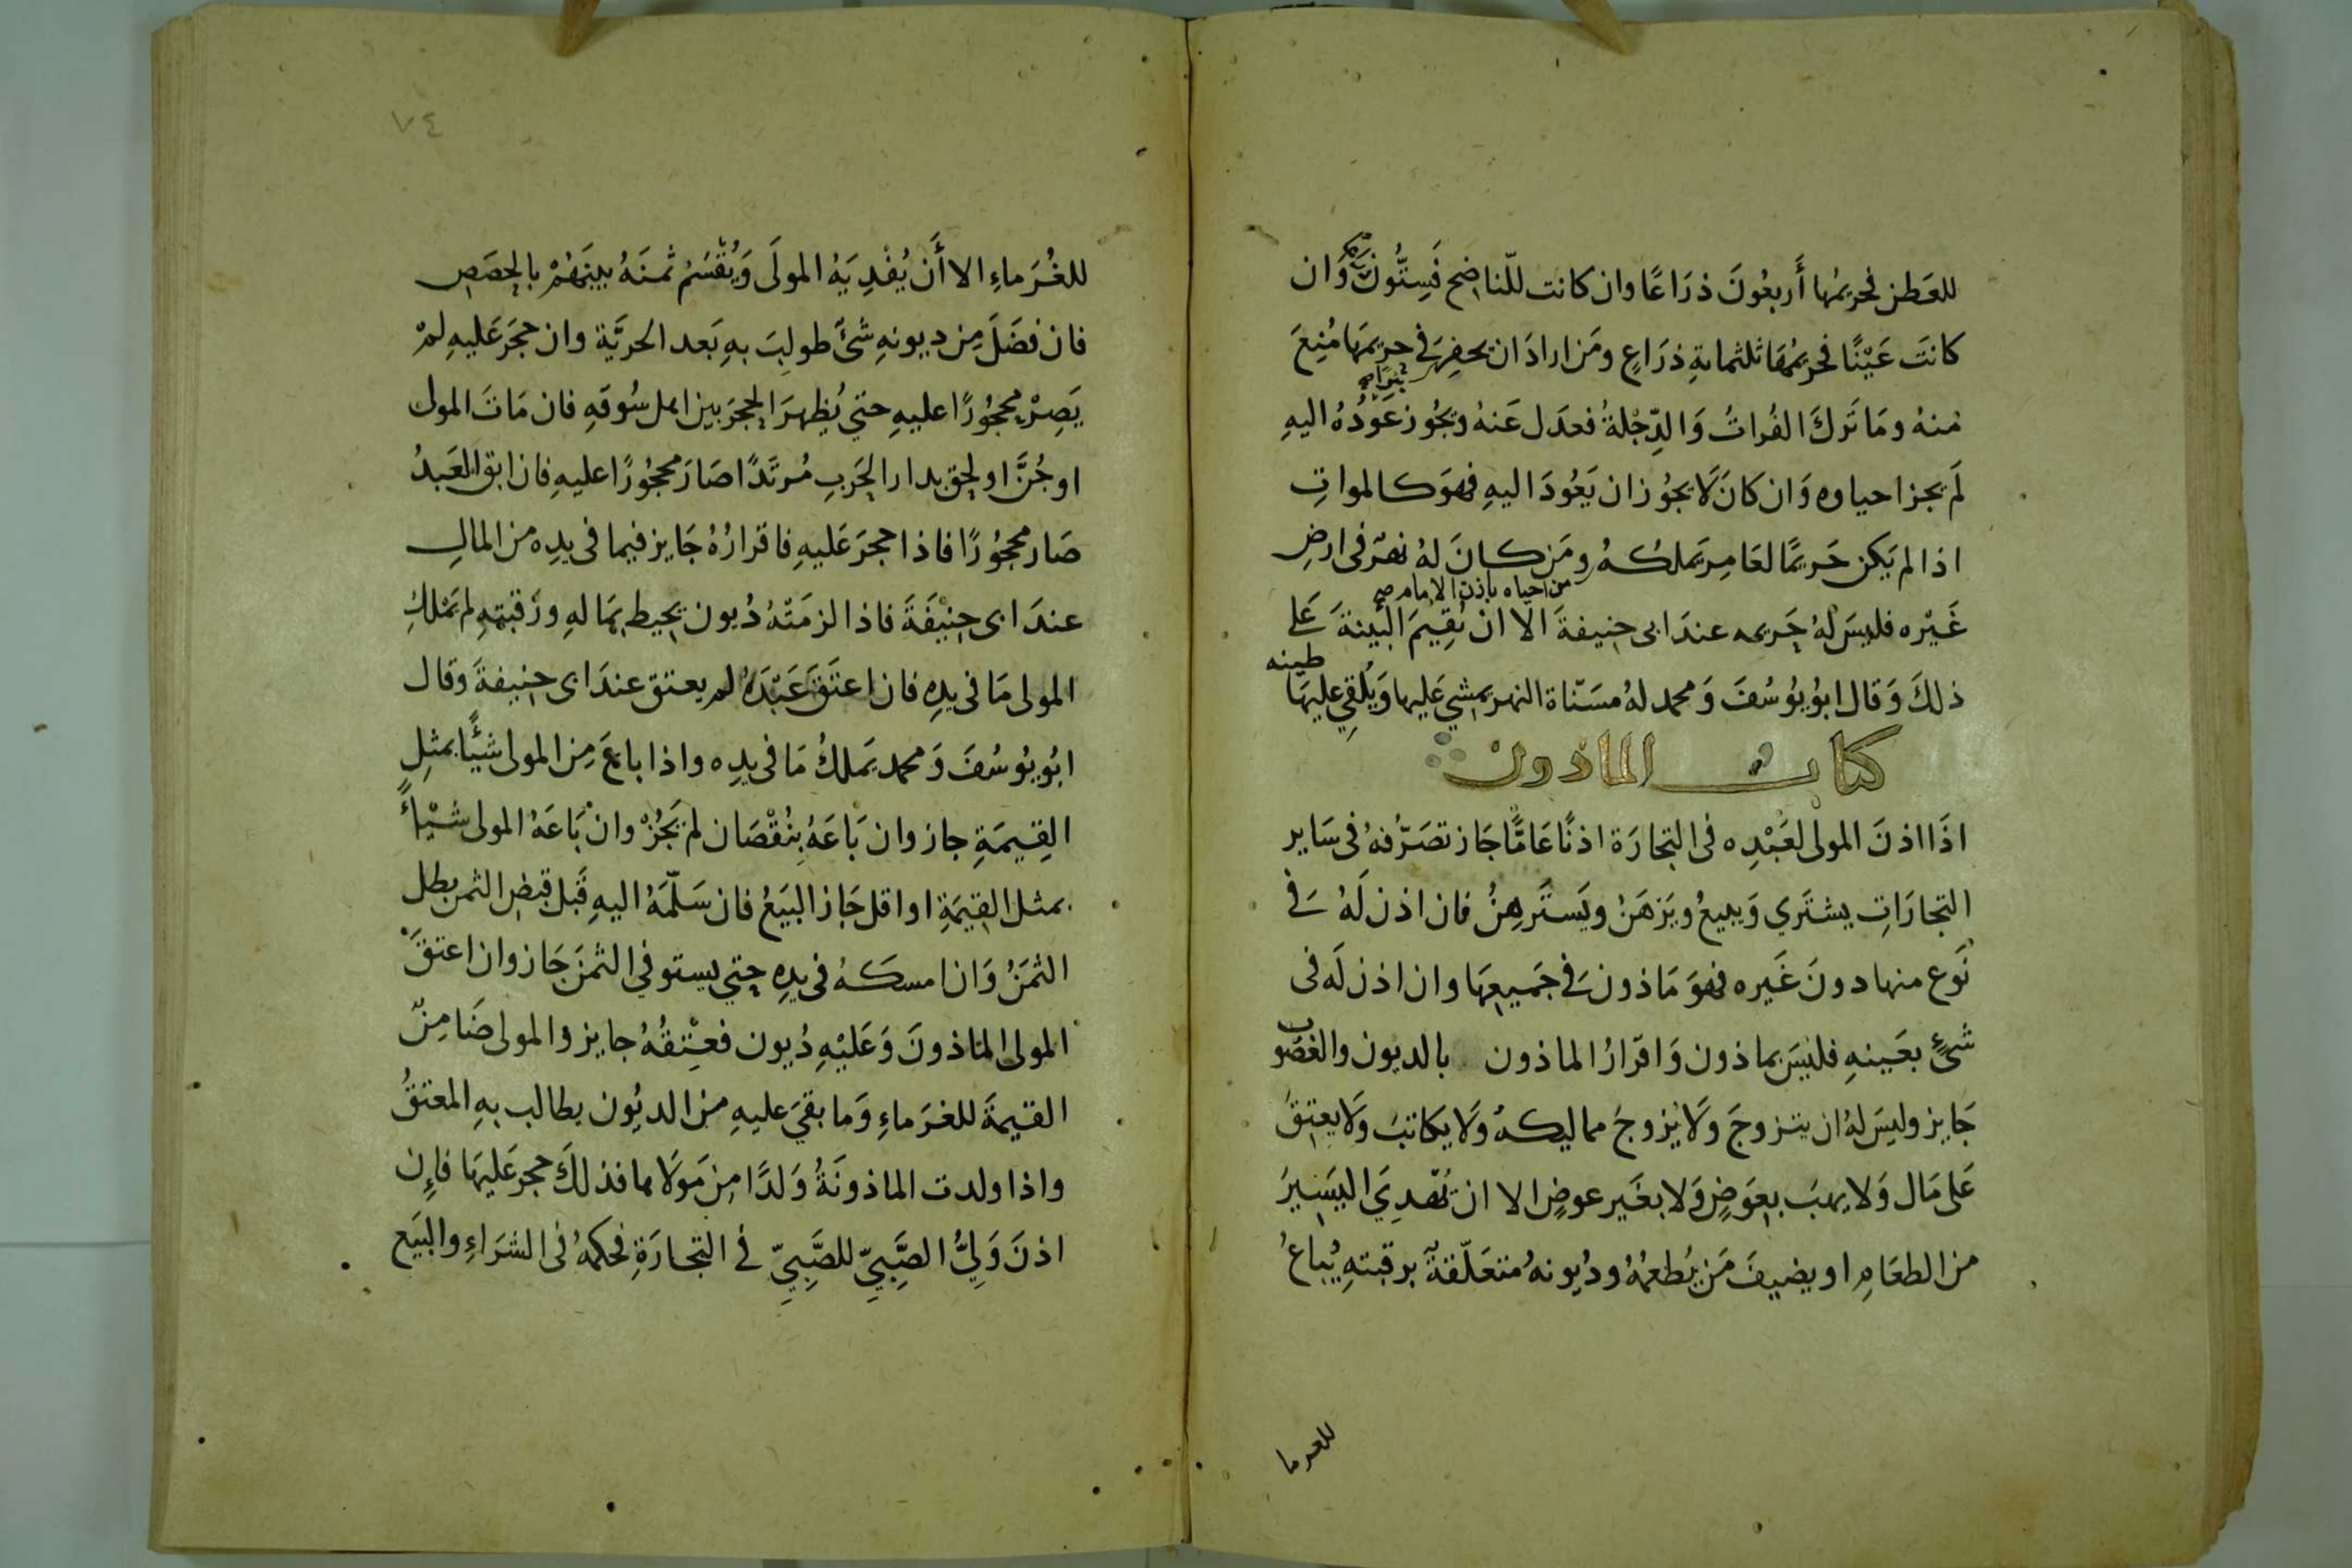 للعَطن فحريمُها أَربعُونَ ذرَاعًا وان كانت للنّاضِح فَسِتُّونَ وَان
كانَت عَيْنًا فحريمُهَا ثلثمايةِ ذرَاعٍ ومَن ارادَ ان يحفِرَ في حريمهَا مُنِعَ
مِنهُ ومَا تَركَ الفُراتُ وَالدِّجْلةُ فعدَل عَنهُ ويَجُوز عَوْدُهُ اليهِ
لَم يجز احياوه وَان كانَ لَا يجوُز ان يَعُودَ اليهِ فهوَ كالمواتِ
اذا لم يَكن حَريمًا لعَامِرٍ يَملكُهُ ومَن كانَ لهُ نهرٌ فى ارضِ
من احياه باذن الامام صح
غَيْره فليسَ لهُ حَريم عندَ ابى حنيفةَ الا ان يُقِيمَ البَيّنةَ عَلى
ذلكَ وَقال ابُو يُوسُفَ وَمحمد لهُ مسَنّاة النهر يمشِي عَليها وَيُلقِي عليهَا
طينه
كتاب الماذون
اذَا اذنَ المولى لعَبْدِه فى التجارَة اذنًا عَامًّا جَاز تصَرّفهُ فى سَاير
التجارَاتِ يشتَري وَيبيعُ ويَرهَنُ ويَستَرهِنُ فان اذن لَهُ في
نَوع منها دونَ غَيره فهوَ مَاذون في جَميعِهَا وان اذن لَه فى
شئٍ بعَينهِ فليسَ بماذون وَاقرَارُ الماذون بالديون والغصُوب
جَايز وليسَ لهُ ان يتزوجَ وَلَا يُزوجَ مماليكهُ وَلَا يكاتبَ وَلَا يعتِقَ
عَلى مَال وَلا يهبَ بعِوَضٍ وَلا بغَير عوضٍ الا ان يُهْدِيَ اليَسِيرَ
من الطعَامِ او يضيفَ مَن يُطعمُهُ ودُيونهُ مُتعَلّقةٌ برقبتهِ يُباعُ
للغرما
٧٤
للغُرَماءِ الا أَن يُفْدِيَهُ المولَى وَيُقْسَمُ ثمنَهُ بينَهُمْ بالحِصَصِ
فان فضَلَ مِن ديونهِ شَئٌ طولِبَ بهِ بَعد الحريَّة وان حجَرَ عَليهِ لمْ
يَصِرْ محجُورًا عليهِ حتي يُظهرَ الحجرَ بين اهل سُوقهِ فان مَاتَ المولى
او جُنَّ او لحِق بدار الحَربِ مُرتَدًا صَارَ محجُورًا عليهِ فان ابقَ العَبدُ
صَار محجُورًا فاذا حجرَ عَليهِ فاقرارُهُ جَايز فيما فى يدِه من المالِ
عندَ ابى حنِيفَةَ فاذا لزمَتْهُ دُيون يحيط بمَالهِ ورَقبتهِ لم يَمْلكُ
المولى مَا فى يدِهِ فان اعتَقَ عَبْدَهُ لم يعتق عندَ ابى حنِيفةَ وَقال
ابُو يُوسُفَ وَمحمد يَملكُ مَا فى يدِه واذا باعَ مِن المولى شيئًا بمثلِ
القِيمَةِ جاز وان بَاعَهُ بنُقْصَان لم يَجُزْ وان بَاعَهُ المولى شيْاً
بمثل القِيمَةِ او اقل جَاز البَيَعُ فان سَلّمَهُ اليهِ قَبل قبضِ الثمن بطل
الثمَنُ وَان امسكهُ فى يدِهِ حتِي يستوفي الثمنَ جَاز وان اعتقَ
المولى الماذونَ وَعَلَيْهِ دُيون فعِتْقُهُ جايز والمولى ضَامِنٌ
القيمةَ للغرَماءِ وَما بقيَ عليهِ مِن الديُون يطالب بهِ المعْتقُ
واذا ولدت الماذونَةُ وَلدًا مِن مَولَاها فذلكَ حجر عَليهَا فإن
اذنَ وَلِيُّ الصَّبِيِّ للصَّبِيِّ في التجارَةِ فحكمهُ فى الشرَاءِ والبَيَع